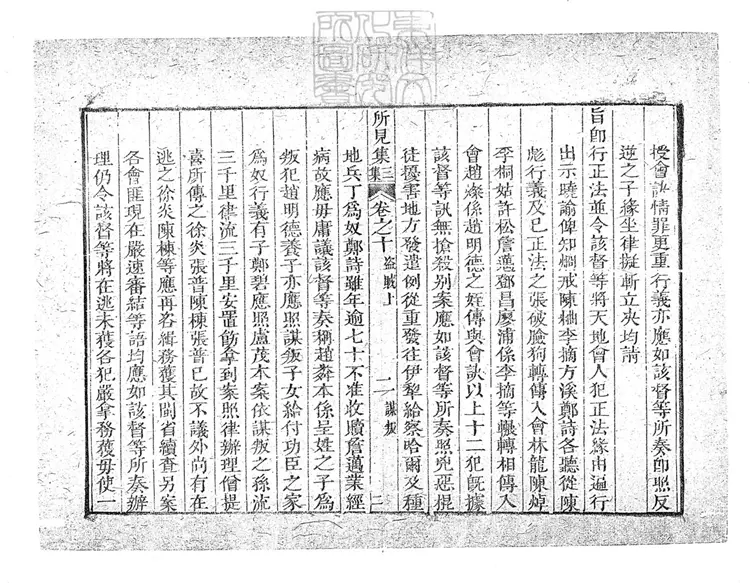 授會訣情罪更重行義亦應如該督等所奏卽照反
逆之子緣坐律擬斬立决均請
旨卽行正法並令該督等將天地會人犯正法緣由遍行
出示曉諭俾知烱戒陳柚李摘方溪鄭詩各聽從陳
彪行義及已正法之張破臉狗轉傳入會林龍陳焯
李桐姑許松詹鄧昌廖浦係李摘等輾轉相傳入
會趙燦係趙明德之姪傳與會訣以上十二犯旣據
該督等訊無搶殺别案應如該督等所奏照兇惡棍
徒擾害地方發遣例從重發往伊犂給察哈爾及種
所見集三集 卷之十 盜賊上 謀叛 三
地兵丁爲奴鄭詩雖年逾七十不准收贖詹邁業經
病故應毋庸議該督等奏稱趙本係呈姓之子爲
叛犯趙明德養子亦應照謀叛子女給付功臣之家
爲奴行義有子鄭碧應照盧茂木案依謀叛之孫流
三千里律流三千里安置飭拿到案照律辦理僧提
喜所傳之徐炎張普陳棟張普已故不議外尚有在
逃之徐炎陳棟等應再咨緝務獲其閩省續查另案
各會匪現在嚴速審結等語均應如該督等所奏辦
理仍令該督等將在逃未獲各犯嚴拿務獲毋使一